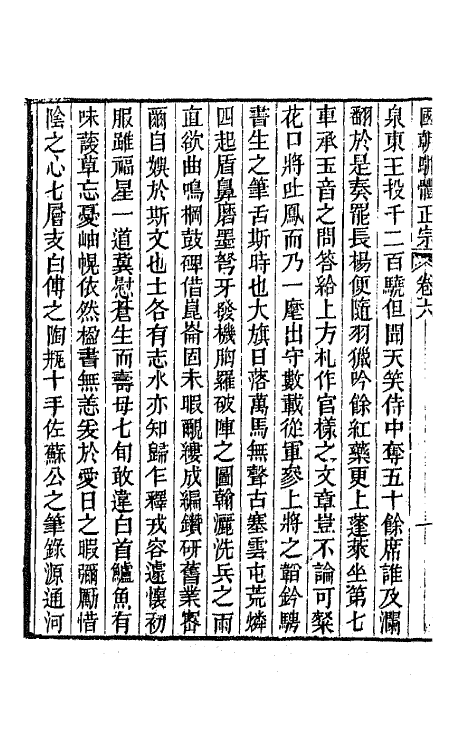 國朝駢體正宗 卷六 一
泉東王投千二百驍但聞天笑侍中奪五十餘席誰及瀾
翻於是奏罷長楊便隨羽獵吟餘紅藥更上蓬萊坐第七
車承玉音之問答給上方札作官樣之文章豈不論可粲
花口將吐鳳而乃一麾出守數載從軍參上將之韜鈐騁
書生之筆舌斯時也大旗日落萬馬無聲古塞雲屯荒燐
四起盾鼻磨墨弩牙發機胸羅破陣之圖翰灑洗兵之雨
直欲曲鳴櫚鼓碑借崑崙固未暇覼縷成編鑽研舊業審
爾自娛於斯文也士各有志水亦知歸乍釋戎容遽懷初
服雖福星一道冀慰蒼生而壽母七旬敢違白首鱸魚有
味諼草忘憂岫幌依然楹書無恙爰於愛日之暇彌勵惜
陰之心七層支白傅之陶瓶十手佐蘇公之筆錄源通河